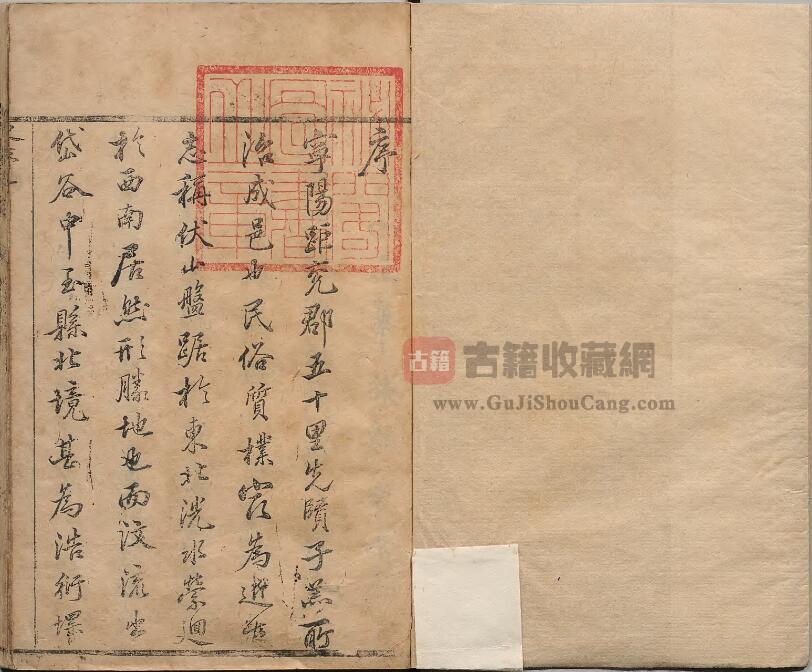 序
寧陽距兗郡五十里先賢子羔所
治成邑也民俗質樸
志稱伏山盤踞於東北洸水縈迴
於西南居然形勝地也而汶流出
岱谷中至縣北境甚為浩衍
古籍
古籍收藏網
www.GuJiShouCang.com